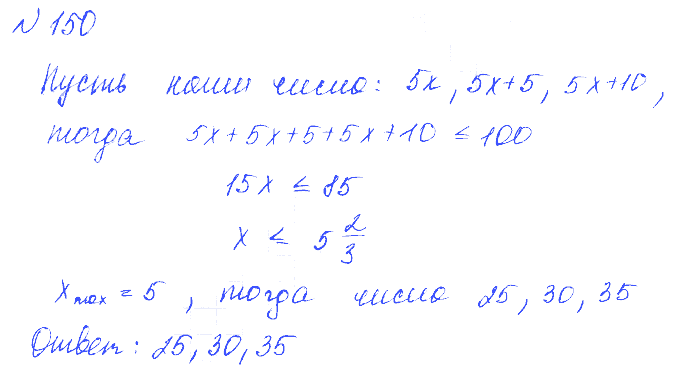 № 150
Пусть наши числа: 5x, 5x+5, 5x+10,
тогда 5x+5x+5+5x+10 ≤ 100
15x ≤ 85
x ≤ 5 2/3
x max = 5, тогда числа 25, 30, 35
Ответ: 25, 30, 35